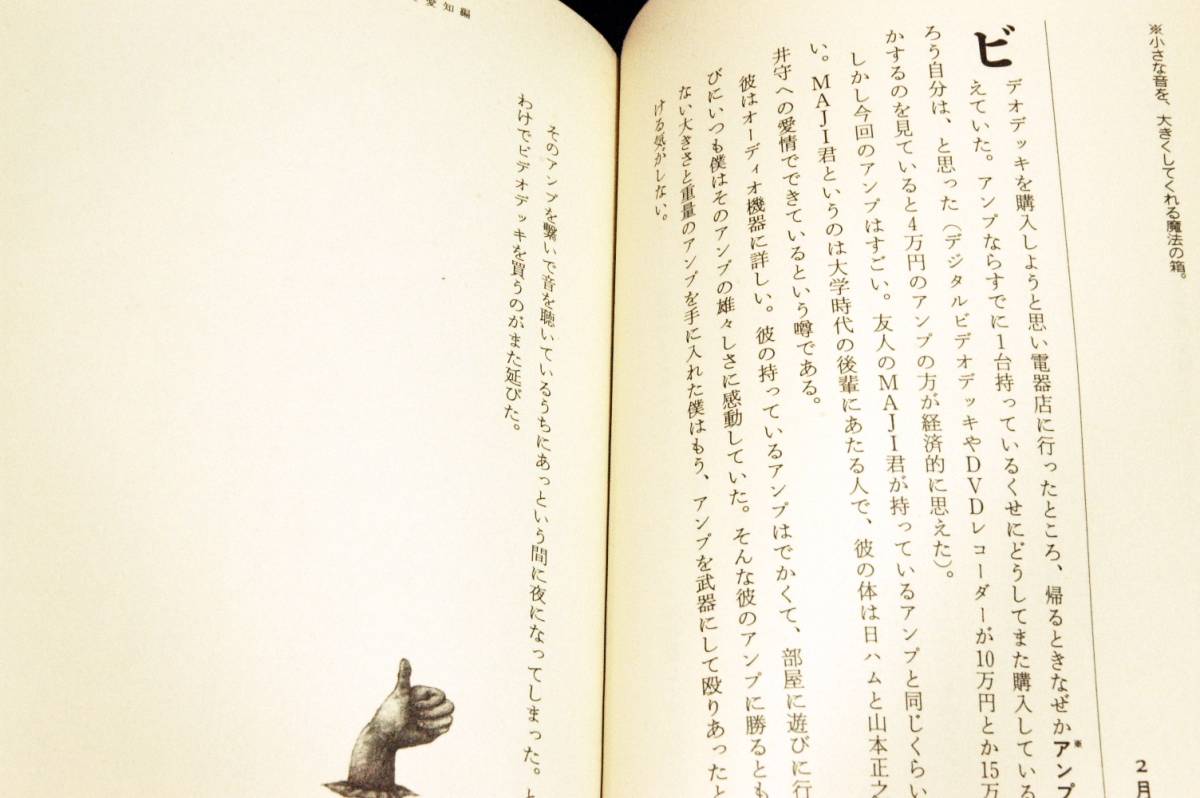 ※小さな音を、大きくしてくれる魔法の箱。
2月
ビデオデッキを購入しようと思い電器店に行ったところ、帰るときなぜかアンプ※
えていた。アンプならすでに1台持っているくせにどうしてまた購入している
ろう自分は、と思った(デジタルビデオデッキやDVDレコーダーが10万円とか15万
かするのを見ていると4万円のアンプの方が経済的に思えた)。
しかし今回のアンプはすごい。友人のMAJI君が持っているアンプと同じくらい
い。MAJI君というのは大学時代の後輩にあたる人で、彼の体は日ハムと山本正之
井守への愛情でできているという噂である。
彼はオーディオ機器に詳しい。彼の持っているアンプはでかくて、部屋に遊びに行
びにいつも僕はそのアンプの雄々しさに感動していた。そんな彼のアンプに勝るとも
ない大きさと重量のアンプを手に入れた僕はもう、アンプを武器にして殴りあったと
ける気がしない。
愛知編
そのアンプを繋いで音を聴いているうちにあっという間に夜になってしまった。と
わけでビデオデッキを買うのがまた延びた。